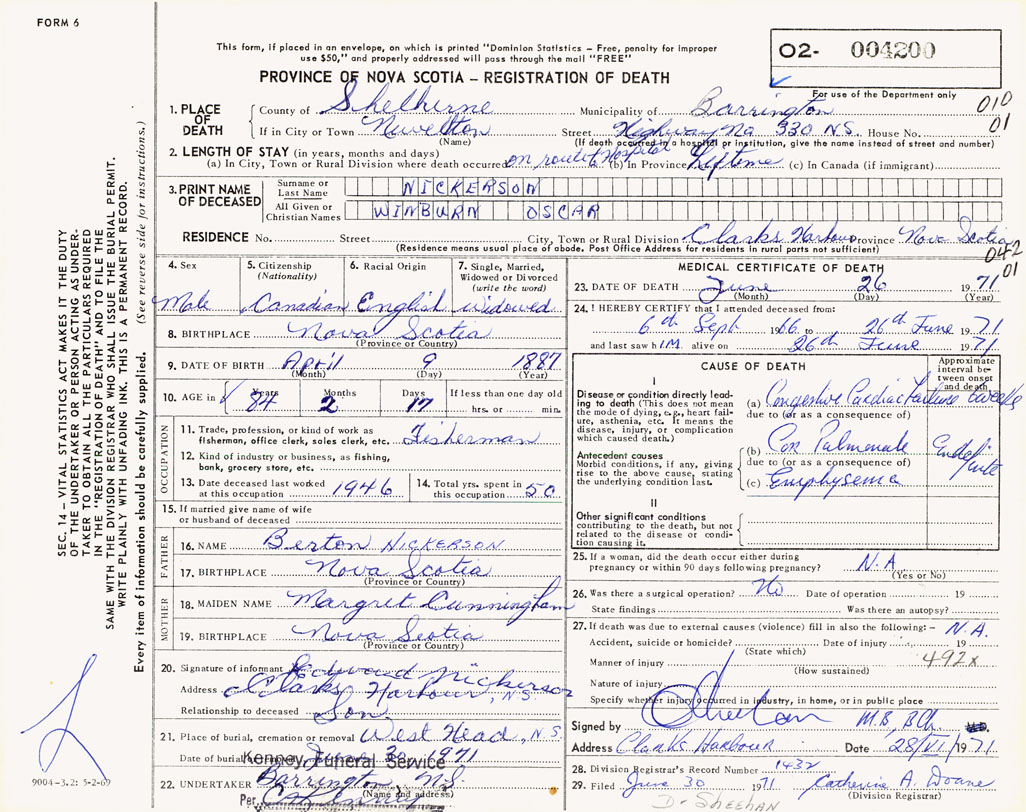 FORM 6
This form, if placed in an envelope, on which is printed "Dominion Statistics – Free, penalty for improper
use $50," and properly addressed will pass through the mail "FREE"
PROVINCE OF NOVA SCOTIA – REGISTRATION OF DEATH
O2- 004200
For use of the Department only
010
01
1. PLACE OF DEATH
County of Shelburne Municipality of Barrington
If in City or Town Newellton Street Highway No 330 N.S. House No.
(Name) (If death occurred in a hospital or institution, give the name instead of street and number)
2. LENGTH OF STAY (in years, months and days)
(a) In City, Town or Rural Division where death occurred on route Hospital (b) In Province Lifetime (c) In Canada (if immigrant)
3. PRINT NAME OF DECEASED
Surname or Last Name NICKERSON
All Given or Christian Names WINBURN OSCAR
RESIDENCE No. Street City, Town or Rural Division Clarks Harbour Province Nova Scotia
(Residence means usual place of abode. Post Office Address for residents in rural parts not sufficient)
042
01
4. Sex 5. Citizenship (Nationality) 6. Racial Origin 7. Single, Married, Widowed or Divorced (write the word)
Male Canadian English Widowed
8. BIRTHPLACE Nova Scotia
(Province or Country)
9. DATE OF BIRTH April 9 1887
(Month) (Day) (Year)
10. AGE in Years Months Days If less than one day old
84 2 17 hrs. or min.
OCCUPATION
11. Trade, profession, or kind of work as fisherman, office clerk, sales clerk, etc. Fisherman
12. Kind of industry or business, as fishing, bank, grocery store, etc.
13. Date deceased last worked at this occupation 1946 14. Total yrs. spent in this occupation 50
15. If married give name of wife or husband of deceased
FATHER
16. NAME Berton NICKERSON
17. BIRTHPLACE Nova Scotia
(Province or Country)
MOTHER
18. MAIDEN NAME Margret Cunningham
19. BIRTHPLACE Nova Scotia
(Province or Country)
20. Signature of informant Edward Nickerson
Address Clarks Harbour, N.S
Relationship to deceased Son
21. Place of burial, cremation or removal West Head, N.S.
Date of burial June 1971
Kenney Funeral Service
22. UNDERTAKER Barrington N.S.
(Name and address)
Per
MEDICAL CERTIFICATE OF DEATH
23. DATE OF DEATH June 26 1971
(Month) (Day) (Year)
24. I HEREBY CERTIFY that I attended deceased from:
6th Sept 1966 to 26th June 1971
and last saw him alive on 26th June 1971
CAUSE OF DEATH
Approximate interval between onset and death
I
Disease or condition directly leading to death (This does not mean the mode of dying, e.g., heart failure, asthenia, etc. It means the disease, injury, or complication which caused death.)
(a) Congestive Cardiac Failure 2 weeks
due to (or as a consequence of)
Antecedent causes
Morbid conditions, if any, giving rise to the above cause, stating the underlying condition last.
(b) Cor Pulmonale
due to (or as a consequence of)
(c) Emphysema
II
Other significant conditions
contributing to the death, but not related to the disease or condition causing it.
25. If a woman, did the death occur either during pregnancy or within 90 days following pregnancy? N.A
(Yes or No)
26. Was there a surgical operation? No Date of operation 19
State findings Was there an autopsy?
27. If death was due to external causes (violence) fill in also the following: – N.A.
Accident, suicide or homicide? Date of injury 19
(State which)
492x
Manner of injury
(How sustained)
Nature of injury
Specify whether injury occurred in industry, in home, or in public place
Signed by Sheehan M.B, B.Ch.
Address Clarks Harbour Date 28/VI/1971
28. Division Registrar's Record Number 1432
29. Filed June 30 1971 Catherine A. Doane
(Division Registrar)
D. SHEEHAN
SEC. 14 – VITAL STATISTICS ACT MAKES IT THE DUTY
OF THE UNDERTAKER OR PERSON ACTING AS UNDER-
TAKER TO OBTAIN ALL THE PARTICULARS REQUIRED
IN THE "REGISTRATION OF DEATH" AND TO FILE THE
SAME WITH THE DIVISION REGISTRAR WHO SHALL ISSUE THE BURIAL PERMIT.
WRITE PLAINLY WITH UNFADING INK. THIS IS A PERMANENT RECORD.
Every item of information should be carefully supplied. (See reverse side for instructions.)
9004-3.2: 5-2-69